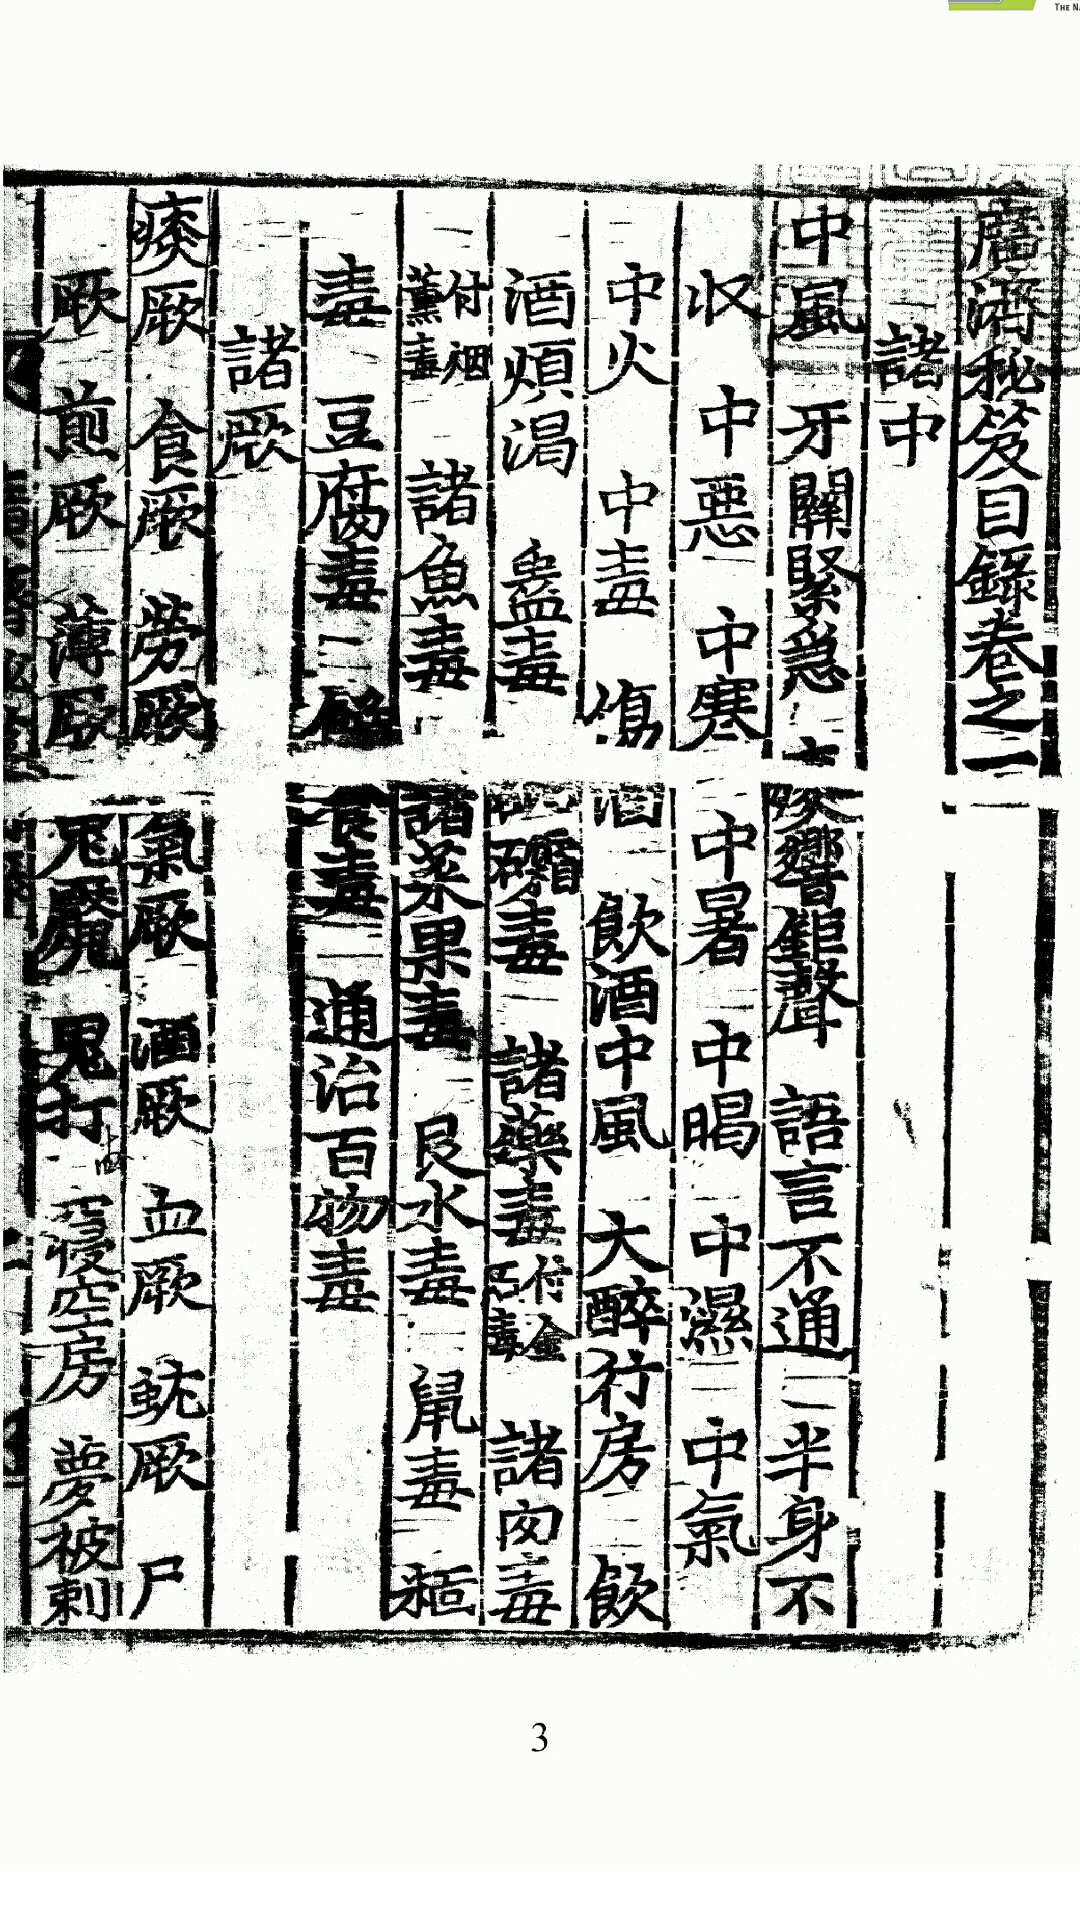 THE NA
廣濟秘笈目錄卷之一
諸中
中風 牙關緊急 痰響鋸聲 語言不通 半身不
收 中惡 中寒 中暑 中暍 中濕 中氣
中火 中毒 傷酒 飲酒中風 大醉行房 飲
酒煩渴 蠱毒 砒礵毒 諸藥毒 付金石毒 諸肉毒
付烟薰毒 諸魚毒 諸菜果毒 艮水毒 鼠毒
毒 豆腐毒 食毒 通治百物毒
諸厥
痰厥 食厥 勞厥 氣厥 酒厥 血厥 蚘厥 尸
厥 煎厥 薄厥 鬼魘 鬼打 寢空房 夢被刺
3